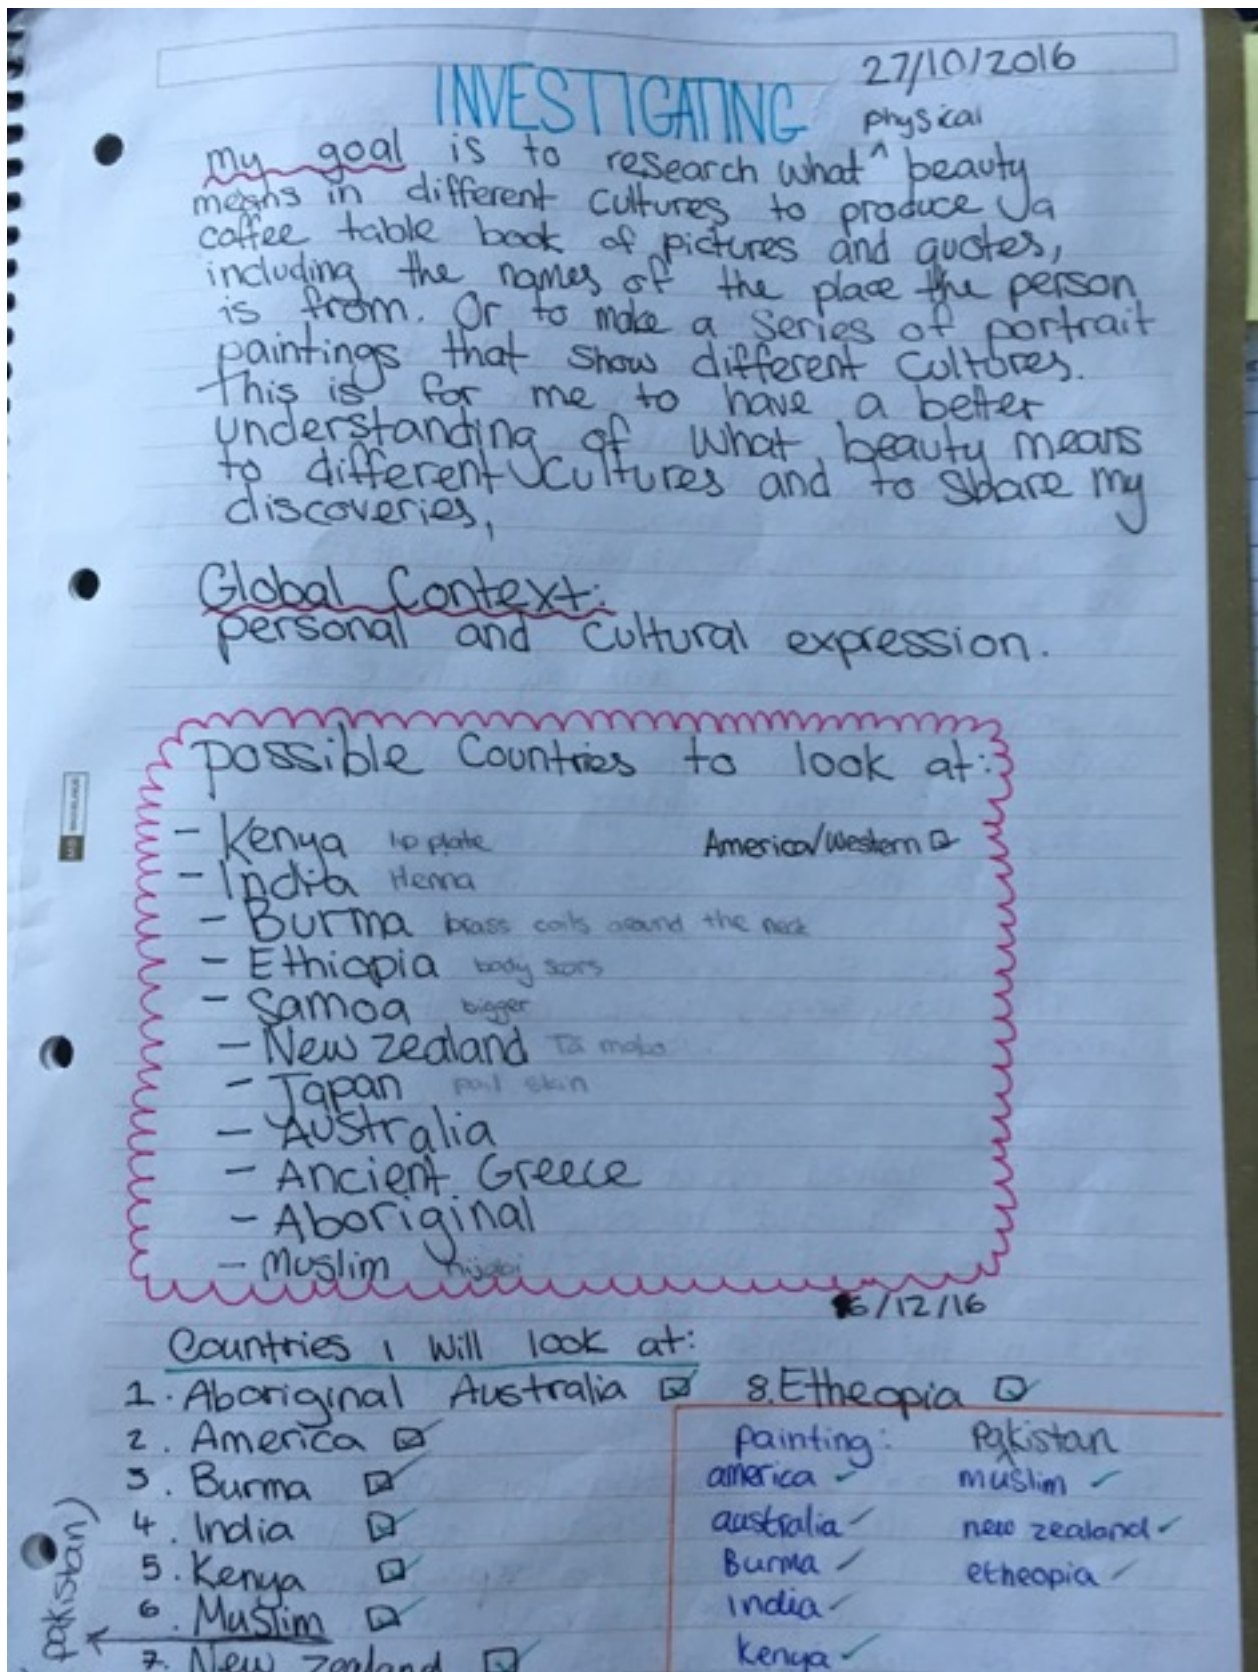 27/10/2016
INVESTIGATING
physical
my goal is to research what ^ beauty
means in different cultures to produce a
coffee table book of pictures and quotes,
including the names of the place the person
is from. Or to make a series of portrait
paintings that show different cultures.
This is for me to have a better
understanding of what beauty means
to different cultures and to share my
discoveries,
Global Context:
personal and cultural expression.
possible Countries to look at:
- Kenya lip plate America/Western
- India Henna
- Burma brass coils around the neck
- Ethiopia body scars
- Samoa bigger
- New Zealand Ta moko
- Japan pail skin
- Australia
- Ancient Greece
- Aboriginal
- Muslim hijabi
6/12/16
Countries I will look at:
1. Aboriginal Australia
2. America
3. Burma
4. India
5. Kenya
6. Muslim
pakistan)
7. New zealand
8. Etheopia
painting:
america
australia
Burma
India
Kenya
Pakistan
muslim
new zealand
etheopia